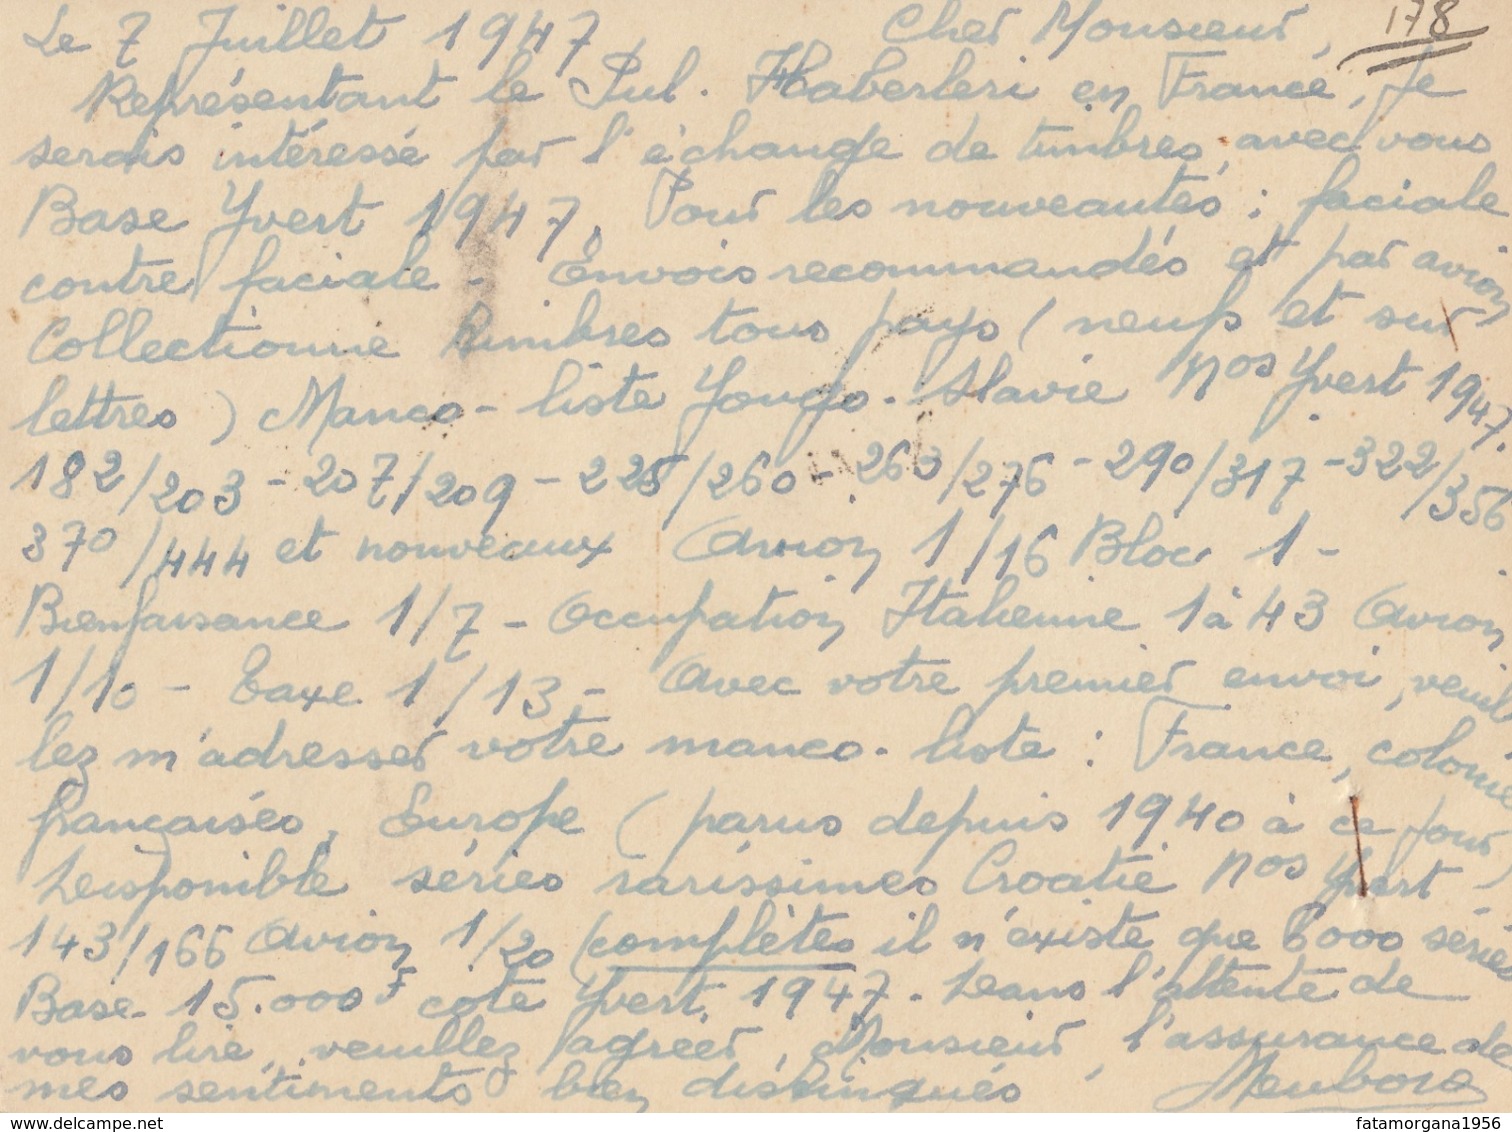 Le 7 Juillet 1947 Cher Monsieur, 178
Représentant le Jul. Haberleri en France, Je
serais intéressé par l'échange de timbres, avec vous
Base Yvert 1947. Pour les nouveautés : faciale
contre faciale - Envois recommandés et par avion
Collectionne timbres tous pays (neufs et sur
lettres) Manco-liste Yougo-Slavie Nos Yvert 1947.
182/203 - 207/209 - 225/260 - 263/276 - 290/317 - 322/356
370/444 et nouveaux Avion 1/16 Bloc 1 -
Bienfaisance 1/7 - Occupation Italienne 1 à 43 Avion
1/10 - Taxe 1/13 - Avec votre premier envoi, veuil
lez m'adresser votre manco-liste : France, colonies
françaises, Europe (parus depuis 1940 à ce jour)
Disponible séries rarissimes Croatie Nos Yvert
143/166 Avion 1/20 (complètes il n'existe que 6000 séries
Base 15.000F cote Yvert 1947. Dans l'attente de
vous lire, veuillez agréer, Monsieur, l'assurance de
mes sentiments bien distingués
delcampe.net
fatamorgana1956